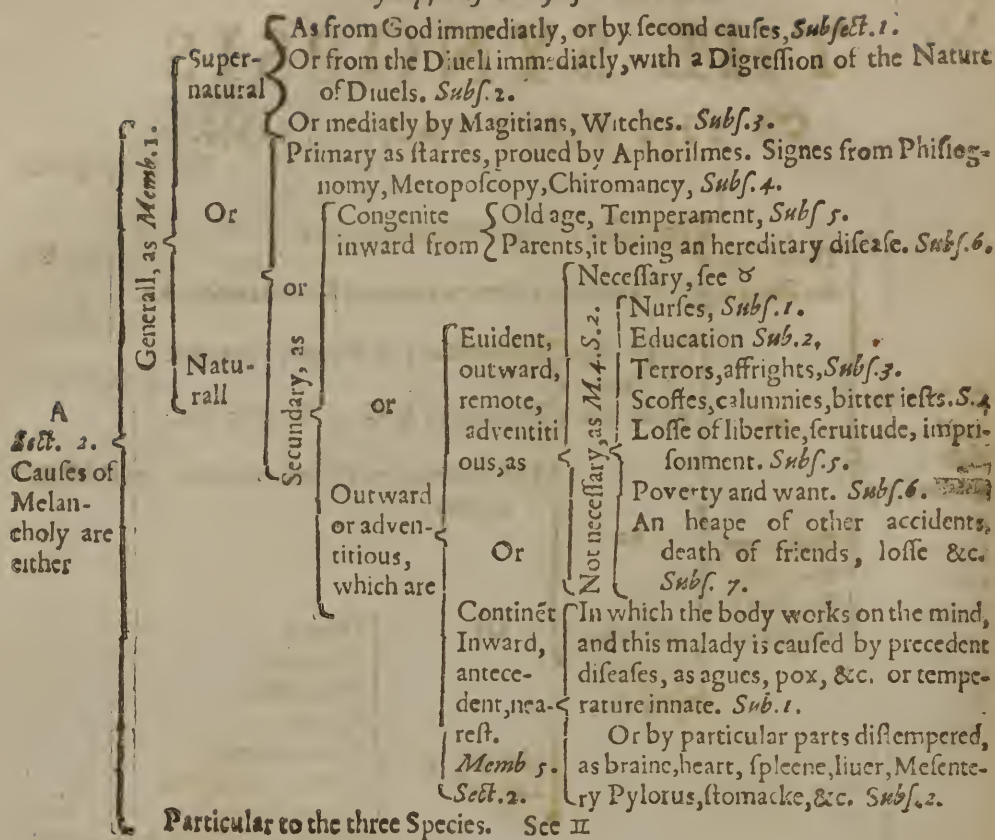 As from God immediatly, or by second causes, Subsect. 1.
Or from the Diuell immediatly, with a Digression of the Nature
of Diuels. Subs. 2.
Or mediatly by Magitians, Witches. Subs. 3.
Super-
natural
Or
Primary as starres, proued by Aphorismes. Signes from Phisiog-
nomy, Metoposcopy, Chiromancy, Subs. 4.
Generall, as Memb. 1.
Natu-
rall
or
Secundary, as
Congenite
inward from
Old age, Temperament, Subs 5.
Parents, it being an hereditary disease. Subs. 6.
or
Outward
or adven-
titious,
which are
Euident,
outward,
remote,
adventiti
ous, as
Necessary, see ♉
Not necessary, as M. 4. S. 2.
Nurses, Subs. 1.
Education Sub. 2,
Terrors, affrights, Subs. 3.
Scoffes, calumnies, bitter iests. S. 4
Losse of libertie, seruitude, impri-
sonment. Subs. 5.
Poverty and want. Subs. 6.
An heape of other accidents,
death of friends, losse &c.
Subs. 7.
Or
Continẽt
Inward,
antece-
dent, nea-
rest.
Memb 5.
Sect. 2.
In which the body works on the mind,
and this malady is caused by precedent
diseases, as agues, pox, &c. or tempe-
rature innate. Sub. 1.
Or by particular parts distempered,
as braine, heart, spleene, liuer, Mesente-
ry Pylorus, stomacke, &c. Subs. 2.
A
Sect. 2.
Causes of
Melan-
choly are
either
Particular to the three Species. See ♊